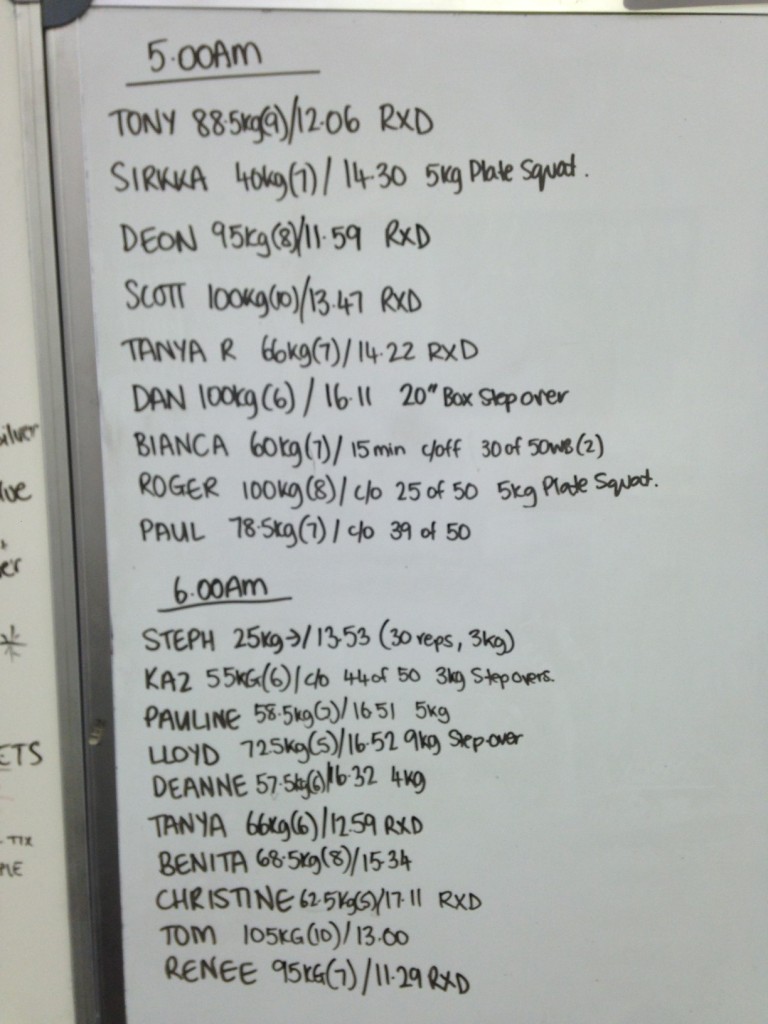 5.00AM
TONY 88.5kg(9)/12.06 RXD
SIRKKA 40kg(7)/ 14.30 5kg Plate Squat.
DEON 95kg(8)/11.59 RXD
SCOTT 100kg(10)/13.47 RXD
TANYA R 66kg(7)/14.22 RXD
DAN 100kg(6) / 16.11 20" Box Step over
BIANCA 60kg(7)/ 15min c/off 30 of 50WB(2)
ROGER 100kg(8)/ c/o 25 of 50 5kg Plate Squat.
PAUL 78.5kg(7)/ c/o 39 of 50
6.00AM
STEPH 25kg→/13.53 (30 reps, 3kg)
KAZ 55KG(6)/c/o 44 of 50 3kg Stepovers.
PAULINE 58.5kg(7)/16.51 5kg
LLOYD 72.5kg(5)/16.52 9kg Step-over
DEANNE 57.5kg(6)/16.32 4kg
TANYA 66kg(6)/12.59 RXD
BENITA 68.5kg(8)/15.34
CHRISTINE 62.5kg(5)/17.11 RXD
TOM 105KG(10)/13.00
RENEE 95KG(7)/11.29 RXD
ilver
ue
er
ETS
TIX